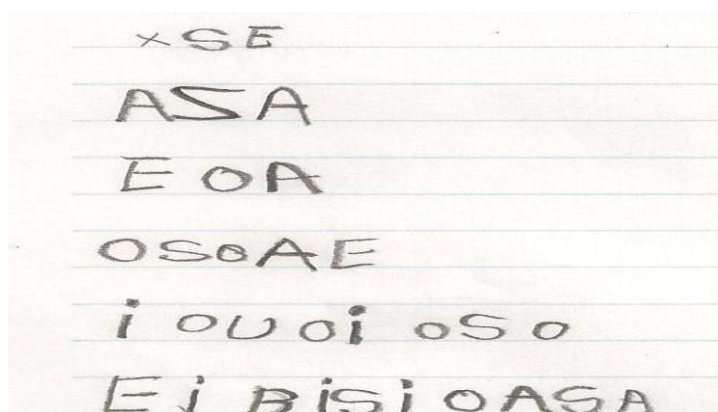 xSE
ASA
E OA
OSOAE
i OUOi OSO
Ei BiSi OASA